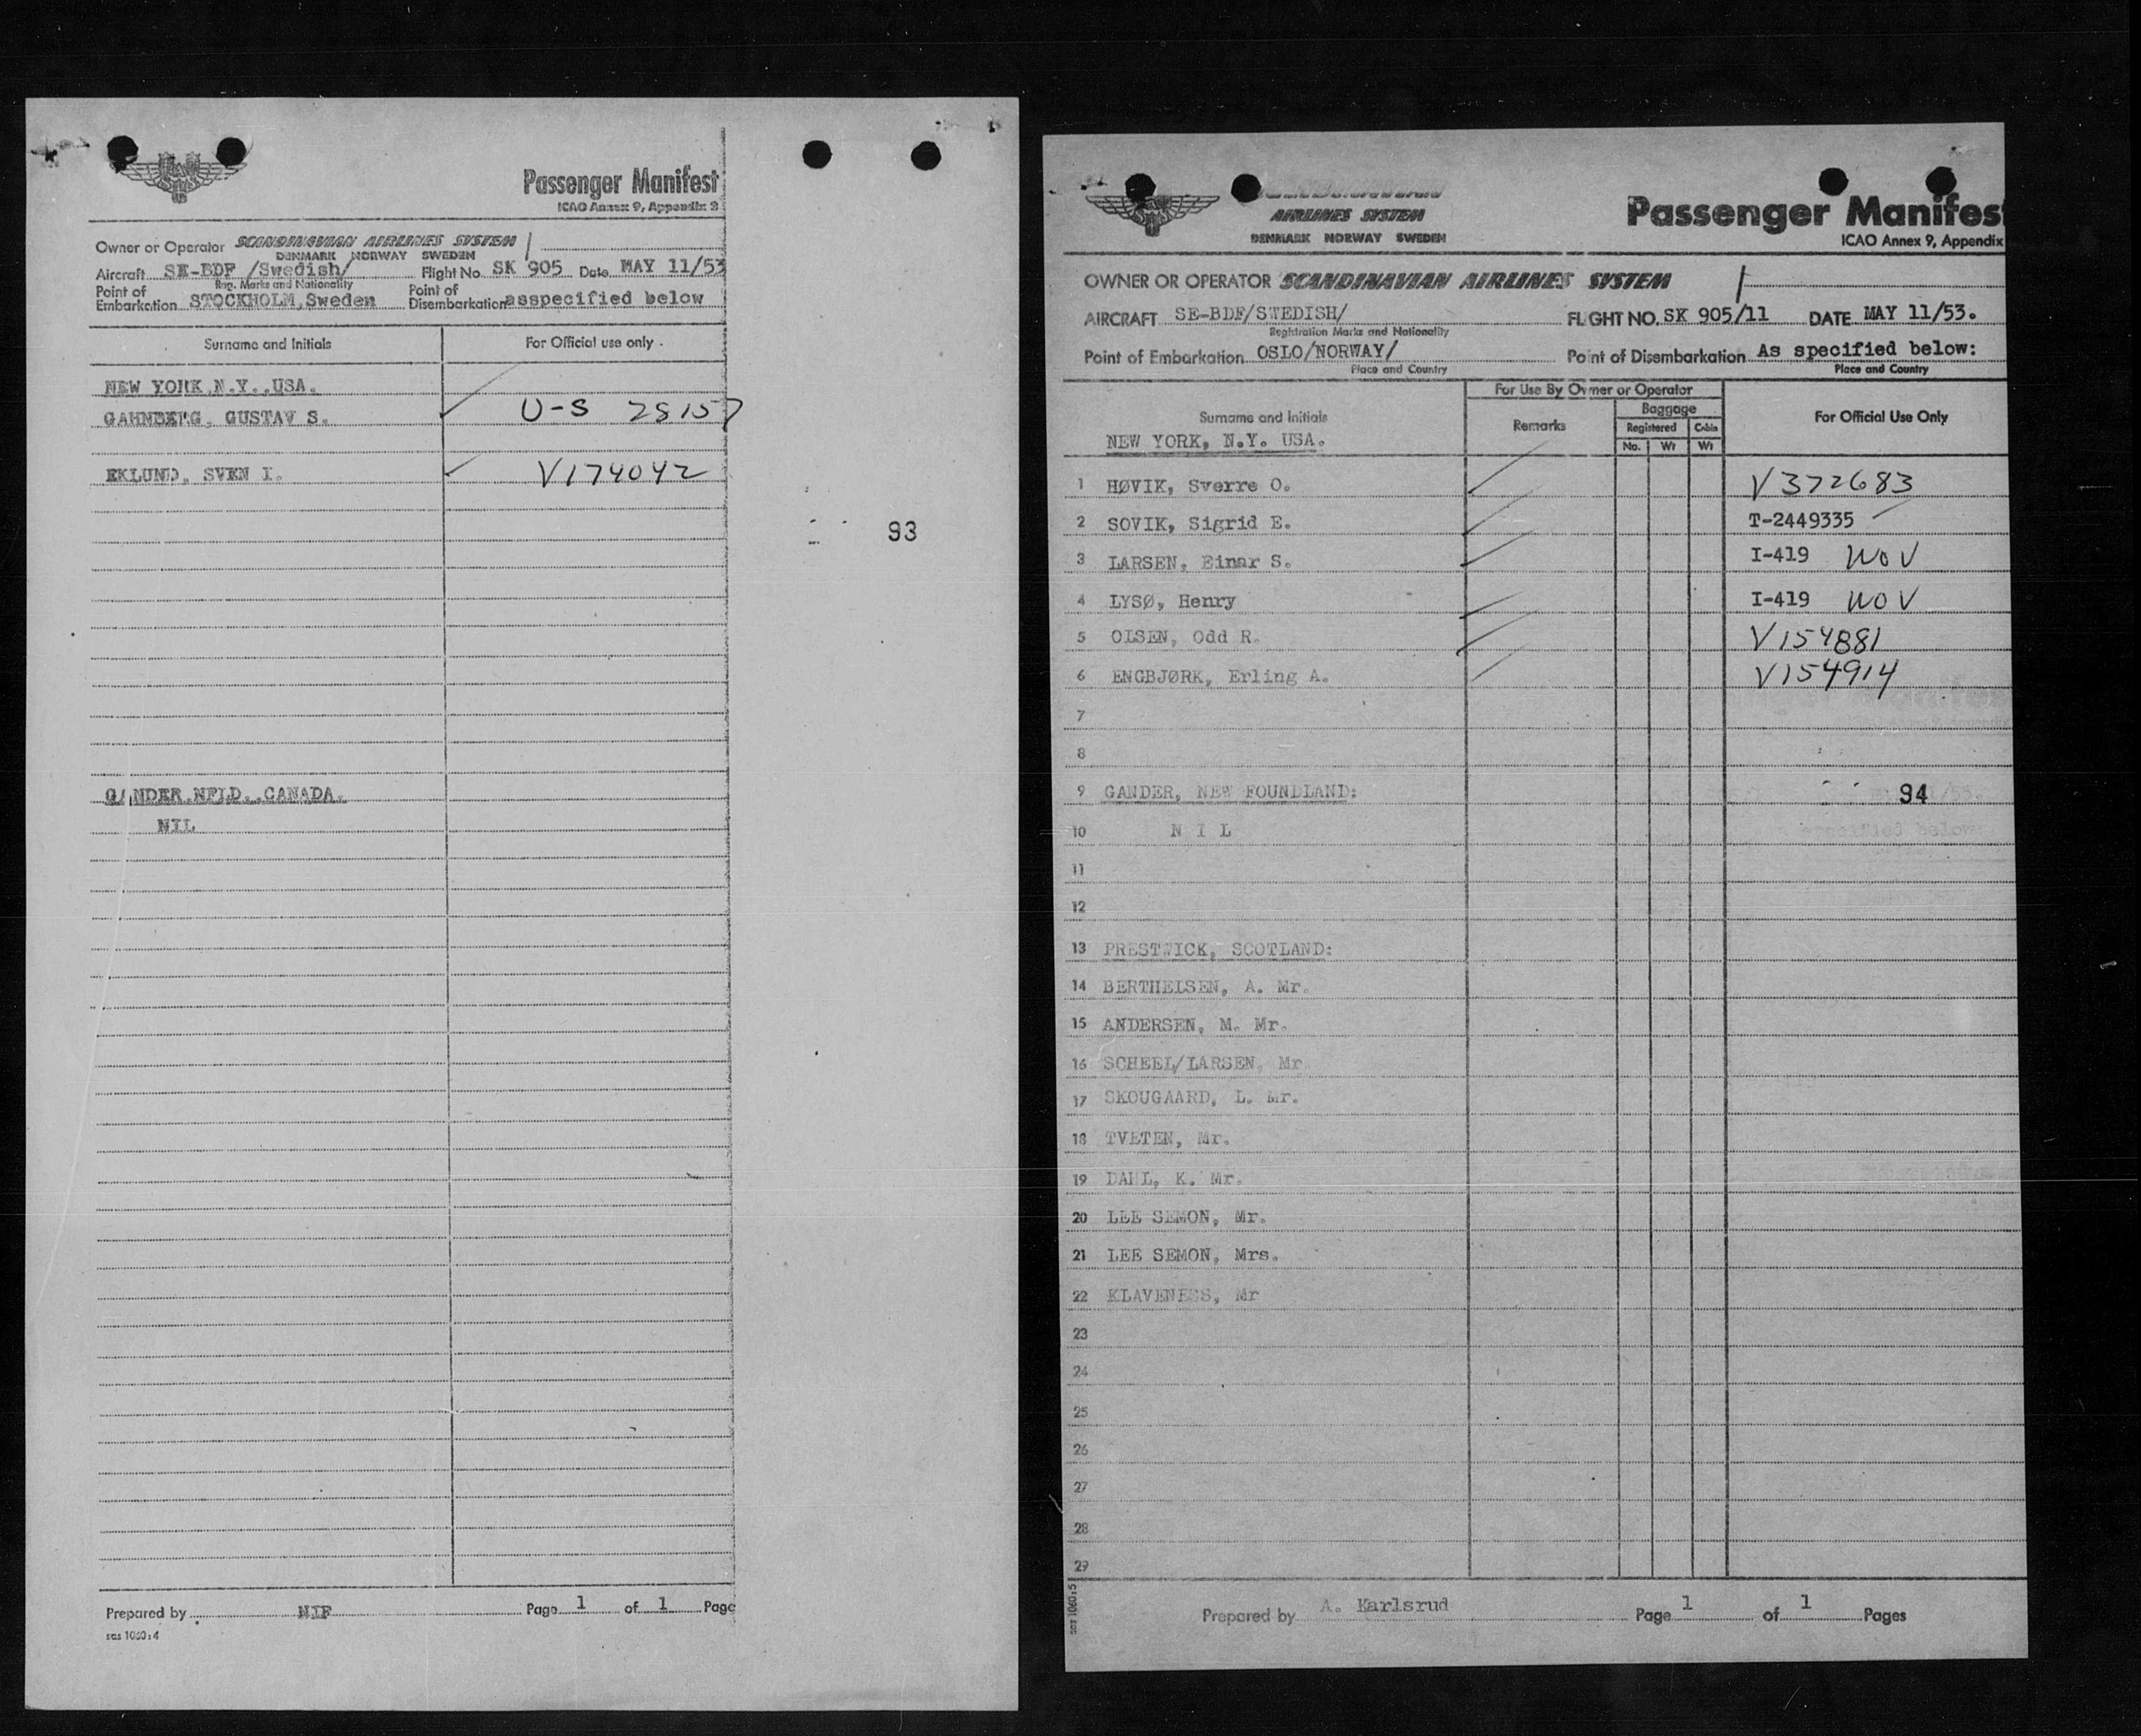 Passenger Manifest
ICAO Annex 9, Appendix 2
Owner or Operator SCANDINAVIAN AIRLINES SYSTEM
DENMARK NORWAY SWEDEN
Aircraft SE-BDF /Swedish/ Flight No. SK 905 Date MAY 11/53
Reg. Marks and Nationality
Point of Embarkation STOCKHOLM,Sweden Point of Disembarkation asspecified below
Surname and Initials For Official use only
NEW YORK,N.Y.,USA.
GAHNBERG, GUSTAV S. U-S 28157
EKLUND, SVEN I. V174042
93
GANDER,NFLD.,CANADA.
NIL
Prepared by NIF Page 1 of 1 Page
sas 1060:4
AIRLINES SYSTEM
DENMARK NORWAY SWEDEN
Passenger Manifes
ICAO Annex 9, Appendix
OWNER OR OPERATOR SCANDINAVIAN AIRLINES SYSTEM
AIRCRAFT SE-BDF/SWEDISH/ FLIGHT NO. SK 905/11 DATE MAY 11/53.
Registration Marks and Nationality
Point of Embarkation OSLO/NORWAY/ Point of Disembarkation As specified below:
Place and Country Place and Country
For Use By Owner or Operator
Surname and Initials Remarks Baggage For Official Use Only
Registered Cabin
NEW YORK, N.Y. USA. No. Wt Wt
1 HØVIK, Sverre O. V372683
2 SOVIK, Sigrid E. T-2449335
3 LARSEN, Einar S. I-419 WOV
4 LYSØ, Henry I-419 WOV
5 OLSEN, Odd R. V154881
6 ENGBJØRK, Erling A. V154914
7
8
9 GANDER, NEW FOUNDLAND: 94
10 N I L
11
12
13 PRESTWICK, SCOTLAND:
14 BERTHELSEN, A. Mr.
15 ANDERSEN, M. Mr.
16 SCHEEL/LARSEN, Mr.
17 SKOUGAARD, L. Mr.
18 TVETEN, Mr.
19 DAHL, K. Mr.
20 LEE SEMON, Mr.
21 LEE SEMON, Mrs.
22 KLAVENESS, Mr
23
24
25
26
27
28
29
sas 1060:5
Prepared by A. Karlsrud Page 1 of 1 Pages